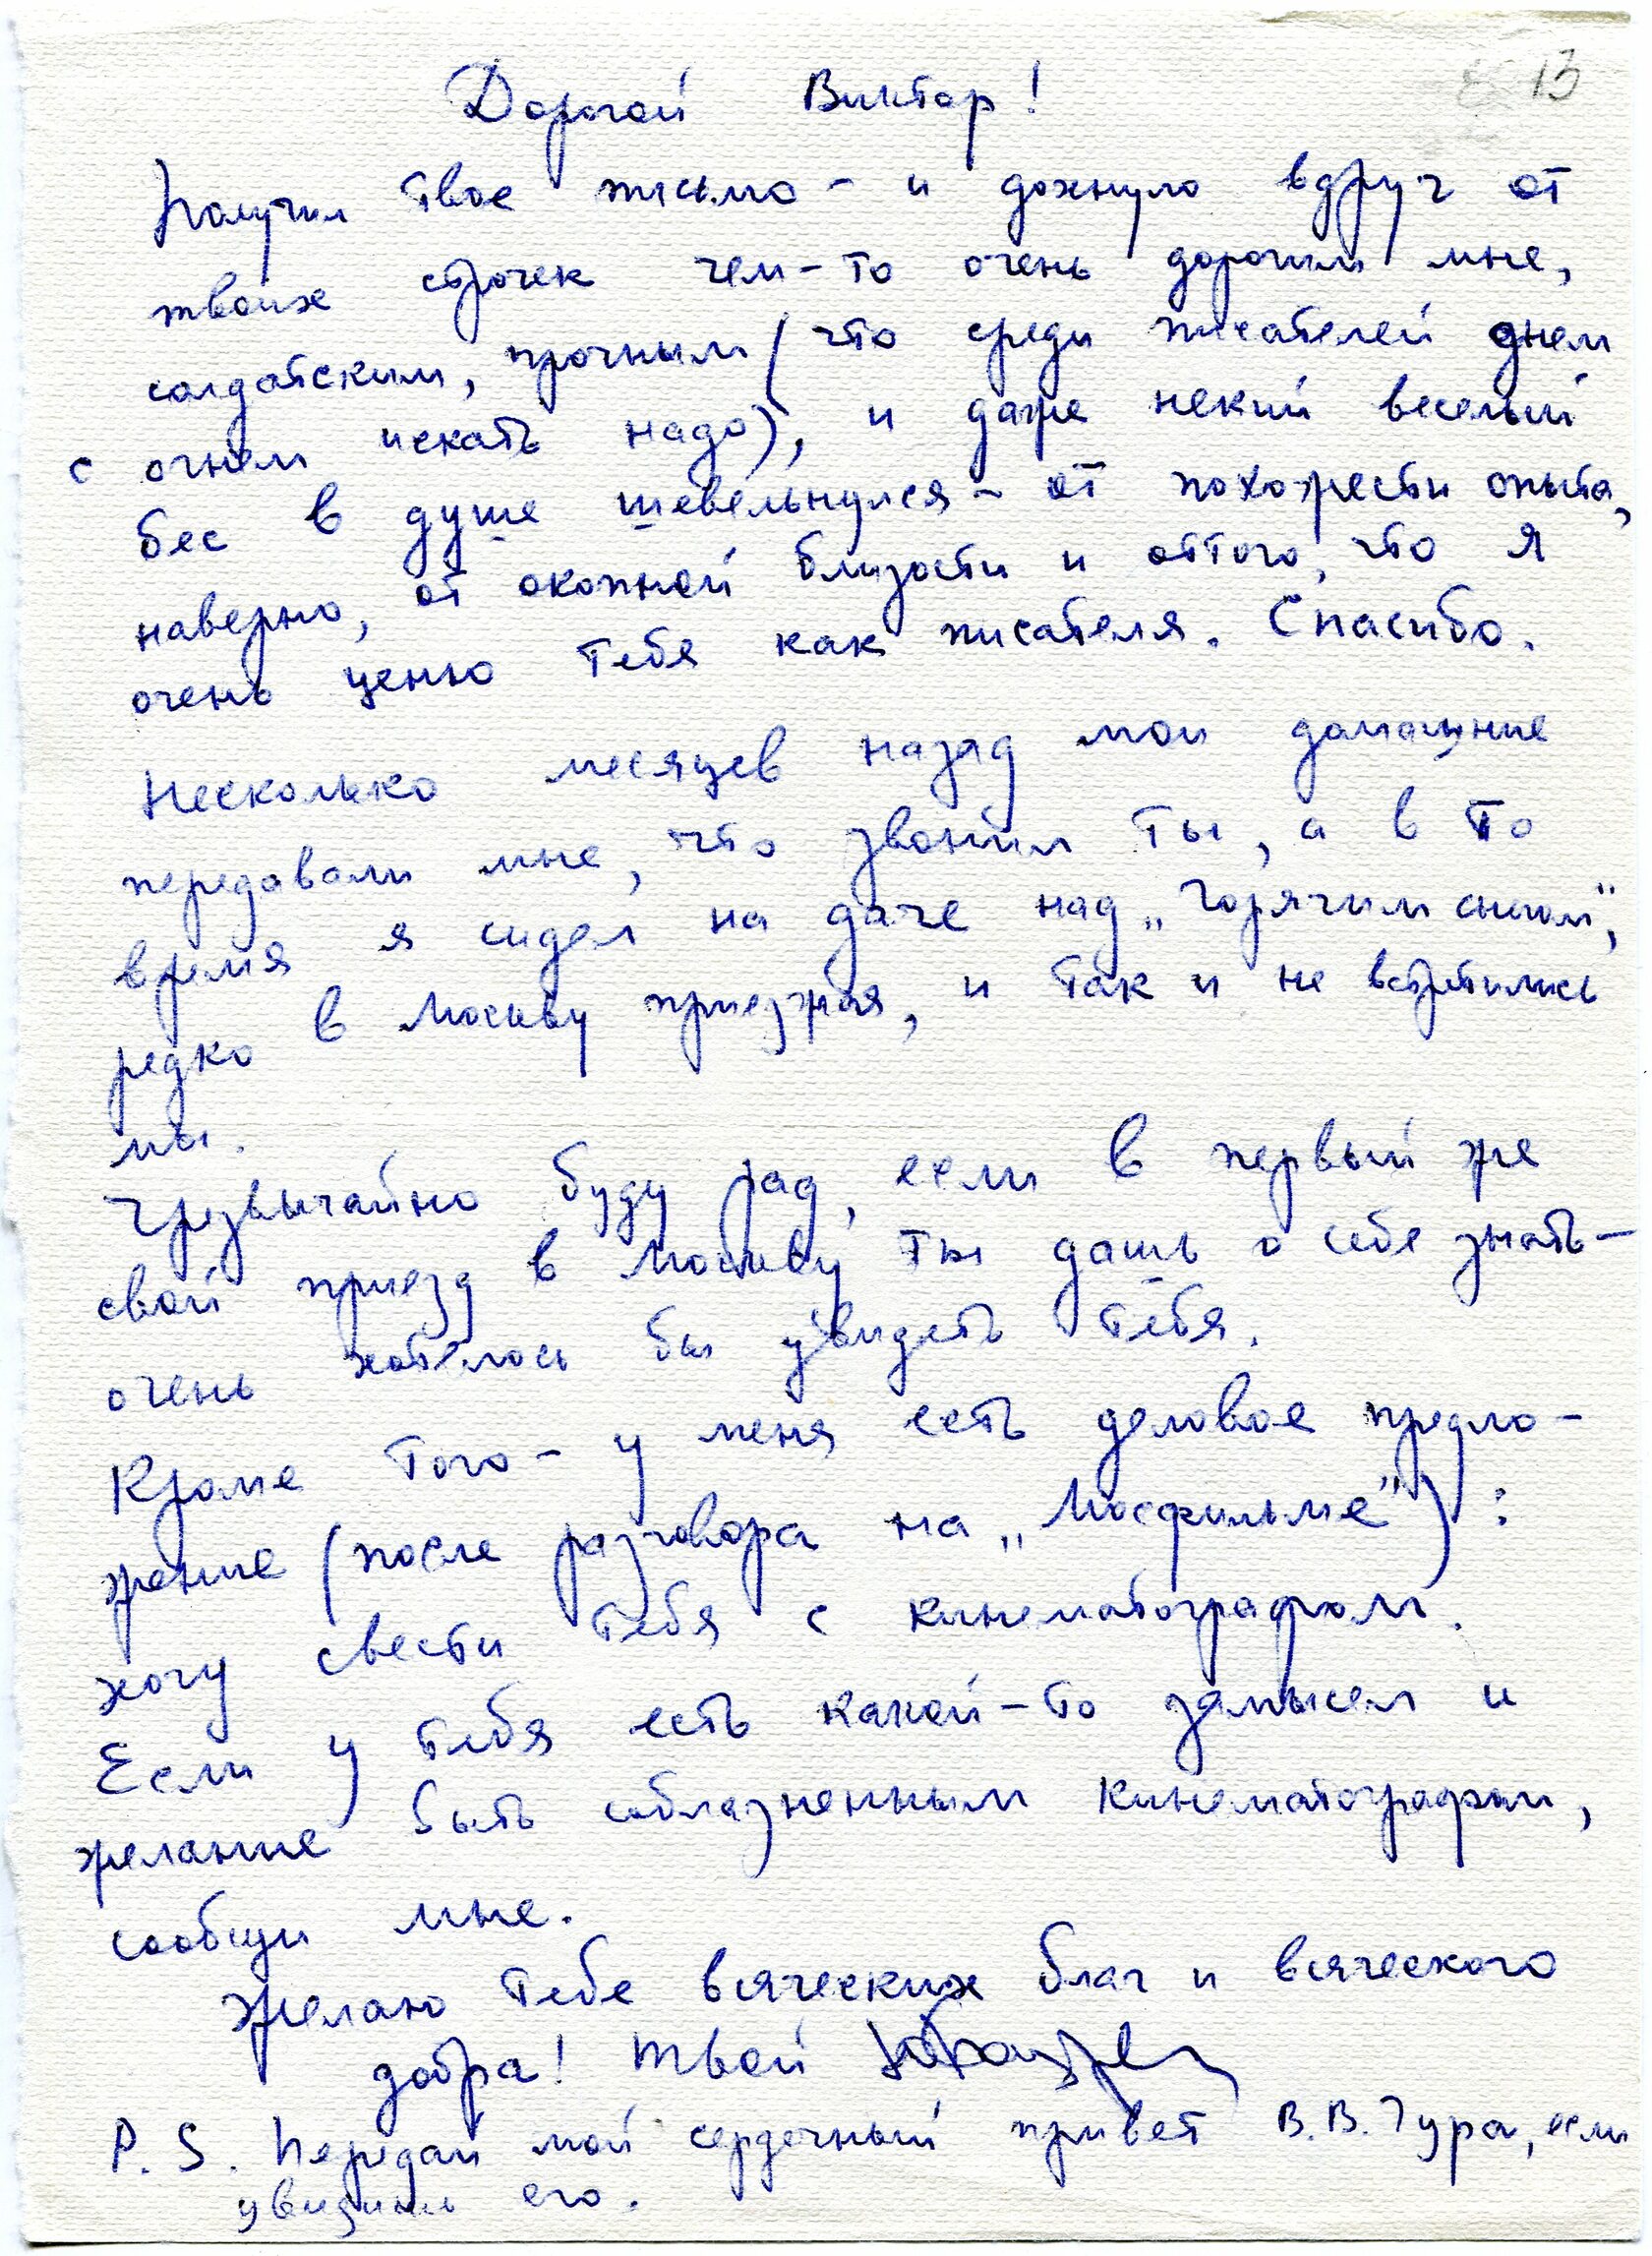 13
Дорогой Виктор!
Получил твое письмо – и дохнуло вдруг от
твоих строчек чем-то очень дорогим мне,
солдатским, прочным (что среди писателей днем
с огнем искать надо), и даже некий веселый
бес в душе шевельнулся – от похожести опыта,
наверно, от окопной близости и оттого, что я
очень ценю тебя как писателя. Спасибо.
Несколько месяцев назад мои домашние
передавали мне, что звонил ты, а в то
время я сидел на даче над „Горячим снегом",
редко в Москву приезжая, и так и не встретились
мы.
Чрезвычайно буду рад, если в первый же
свой приезд в Москву ты дашь о себе знать –
очень хотелось бы увидеть тебя.
Кроме того – у меня есть деловое предло-
жение (после разговора на „Мосфильме"):
хочу свести тебя с кинематографом.
Если у тебя есть какой-то замысел и
желание быть соблазненным кинематографом,
сообщи мне.
Желаю тебе всяческих благ и всяческого
добра! Твой ЮБондарев
P.S. Передай мой сердечный привет В.В. Гура, если
увидишь его.